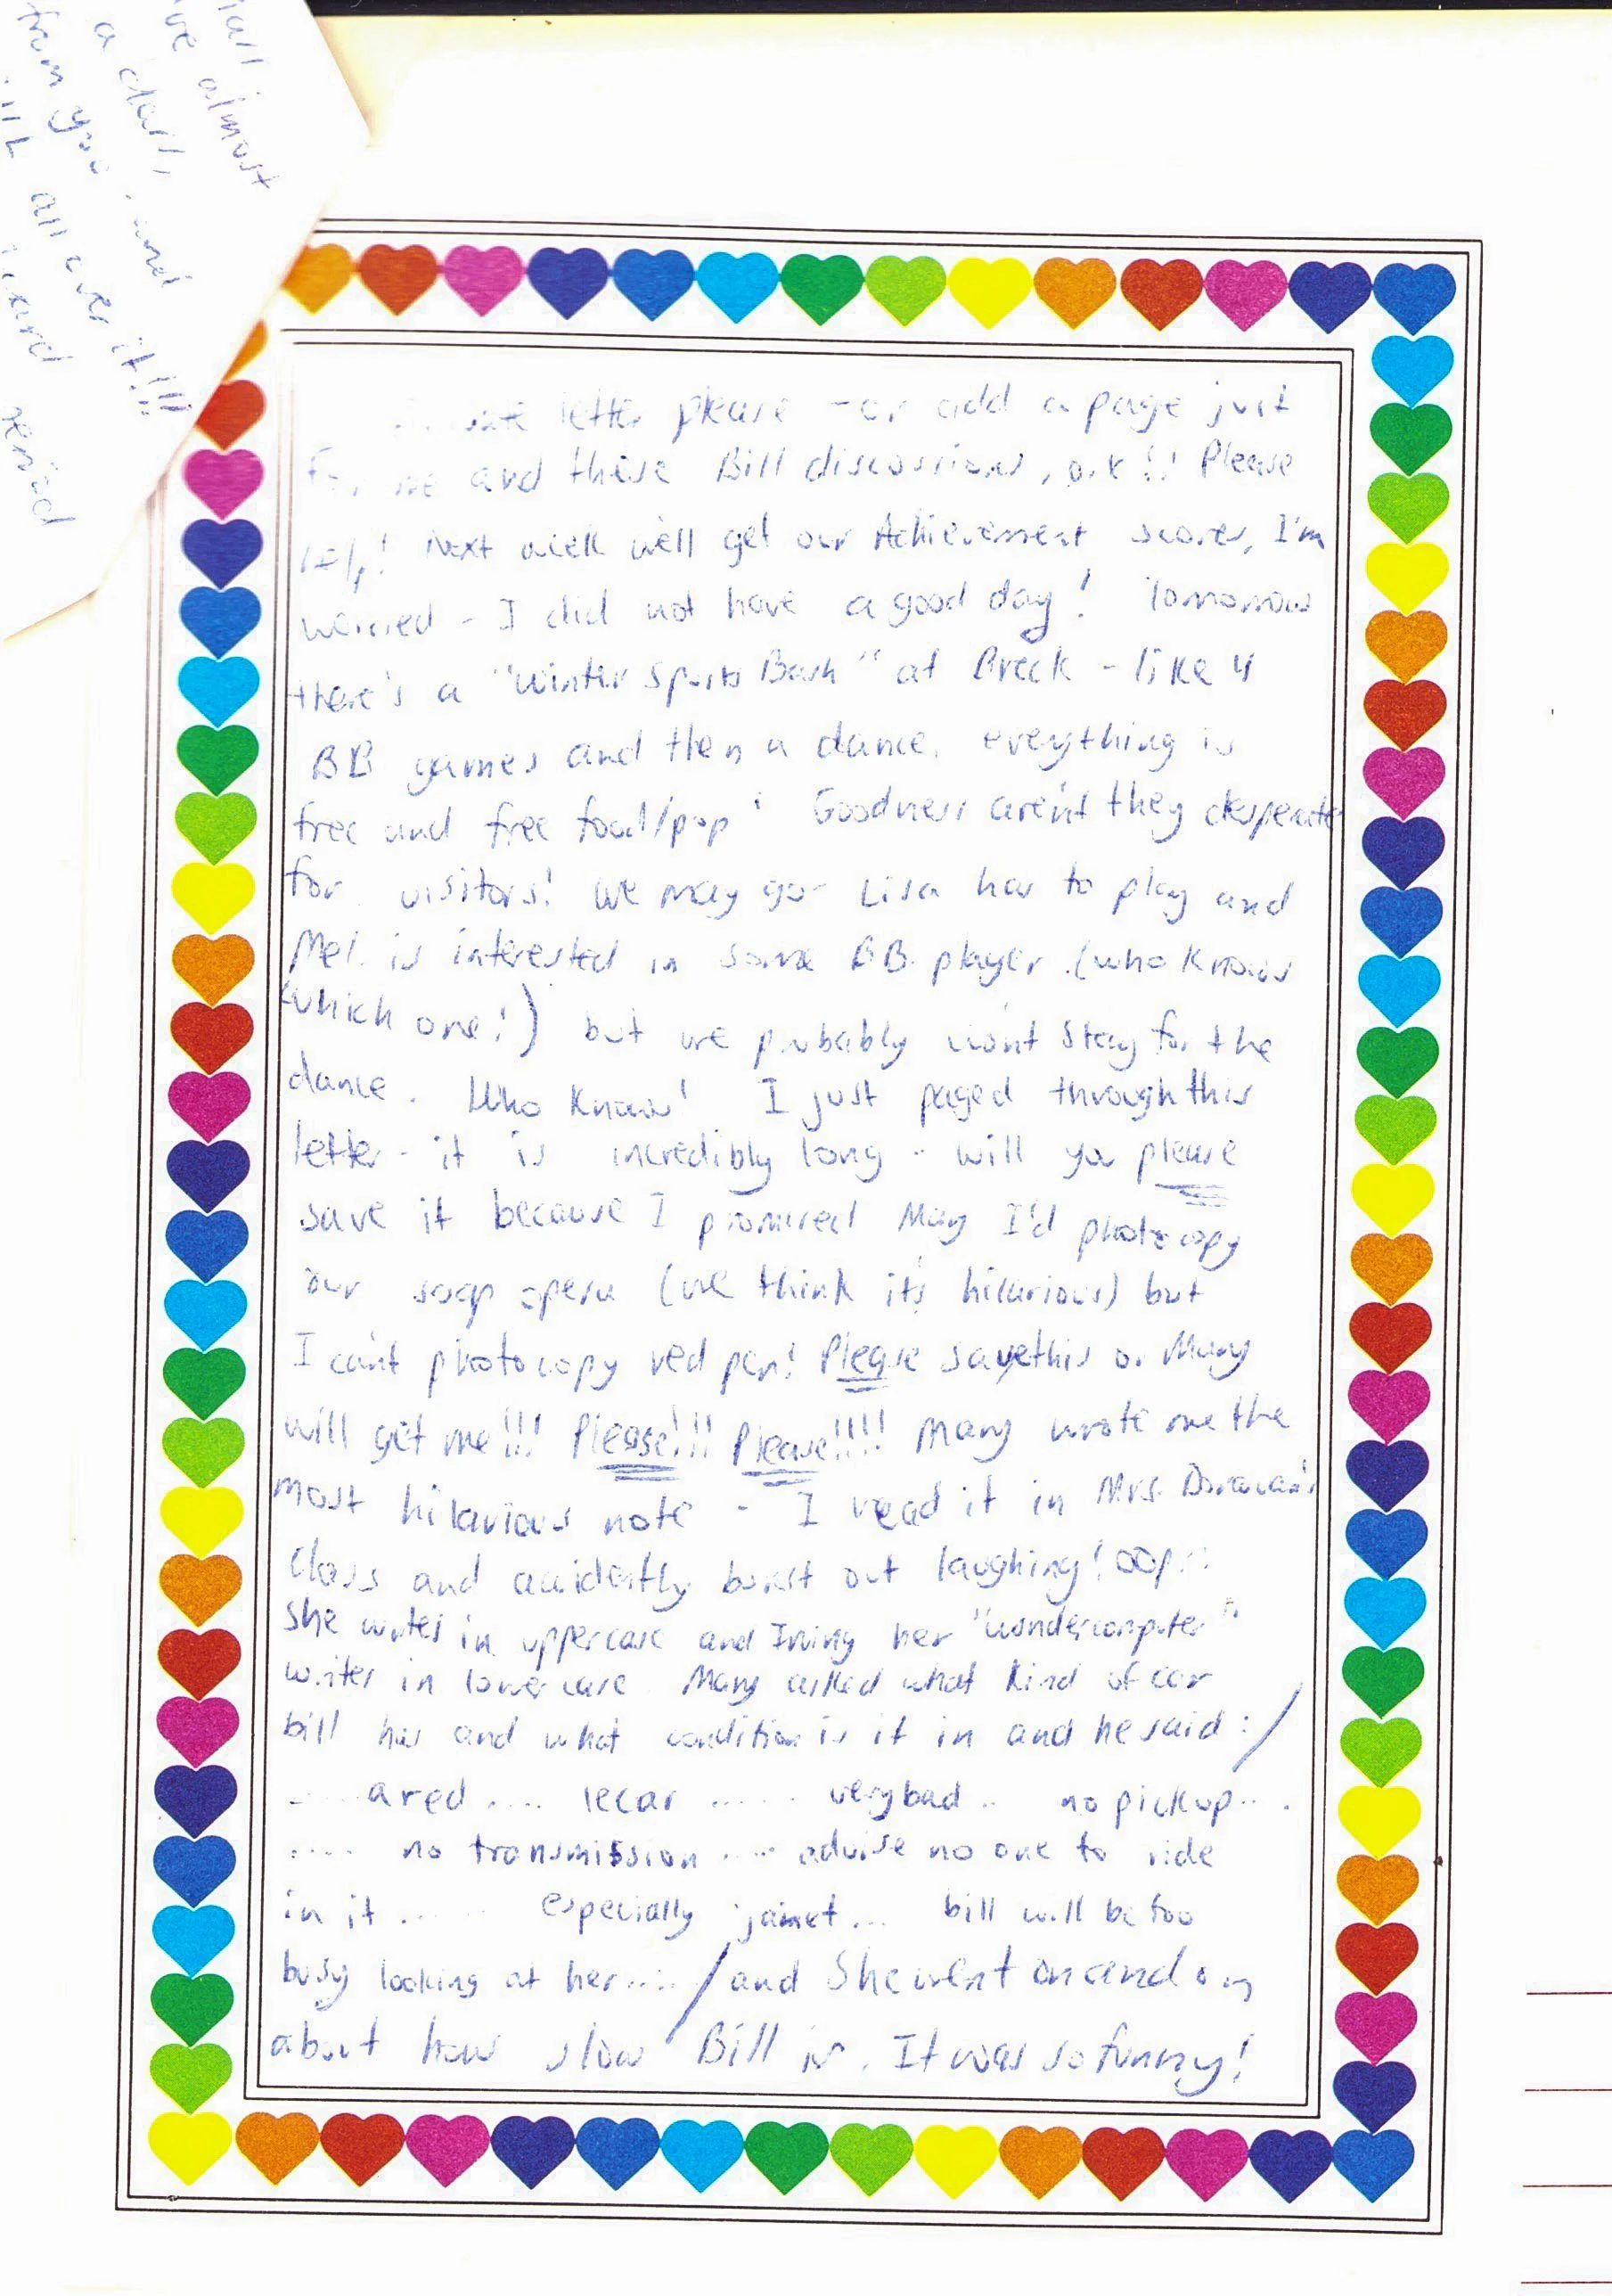 almost
a
from you, and
all over it!!!
letter please - or add a page just
me and these Bill discussions, o.k!! Please
Next week we'll get our Achievement scores, I'm
worried - I did not have a good day! Tomorrow
there's a "Winter Sports Bash" at Breck - like 4
BB games and then a dance. everything is
free and free food/pop! Goodness aren't they desperate
for visitors! We may go - Lisa has to play and
Mel. is interested in some BB player. (who knows
which one!) but we probably won't stay for the
dance. Who knows! I just paged through this
letter - it is incredibly long - will you please
save it because I promised Mary I'd photocopy
our soap opera (we think it's hilarious) but
I can't photocopy red pen! Please save this or Mary
will get me!!! Please!!! Please!!!! Mary wrote me the
most hilarious note - I read it in Mrs. Donovan's
class and accidently burst out laughing! oops!!
She writes in uppercase and Irving her "wondercomputer"
writes in lowercase. Mary asked what kind of car
bill has and what condition is it in and he said :/
..... a red .... lecar ..... very bad .. no pickup ...
.... no transmission .... advise no one to ride
in it ...... especially janet ... bill will be too
busy looking at her..... / and She went on and on
about how slow Bill is. It was so funny!